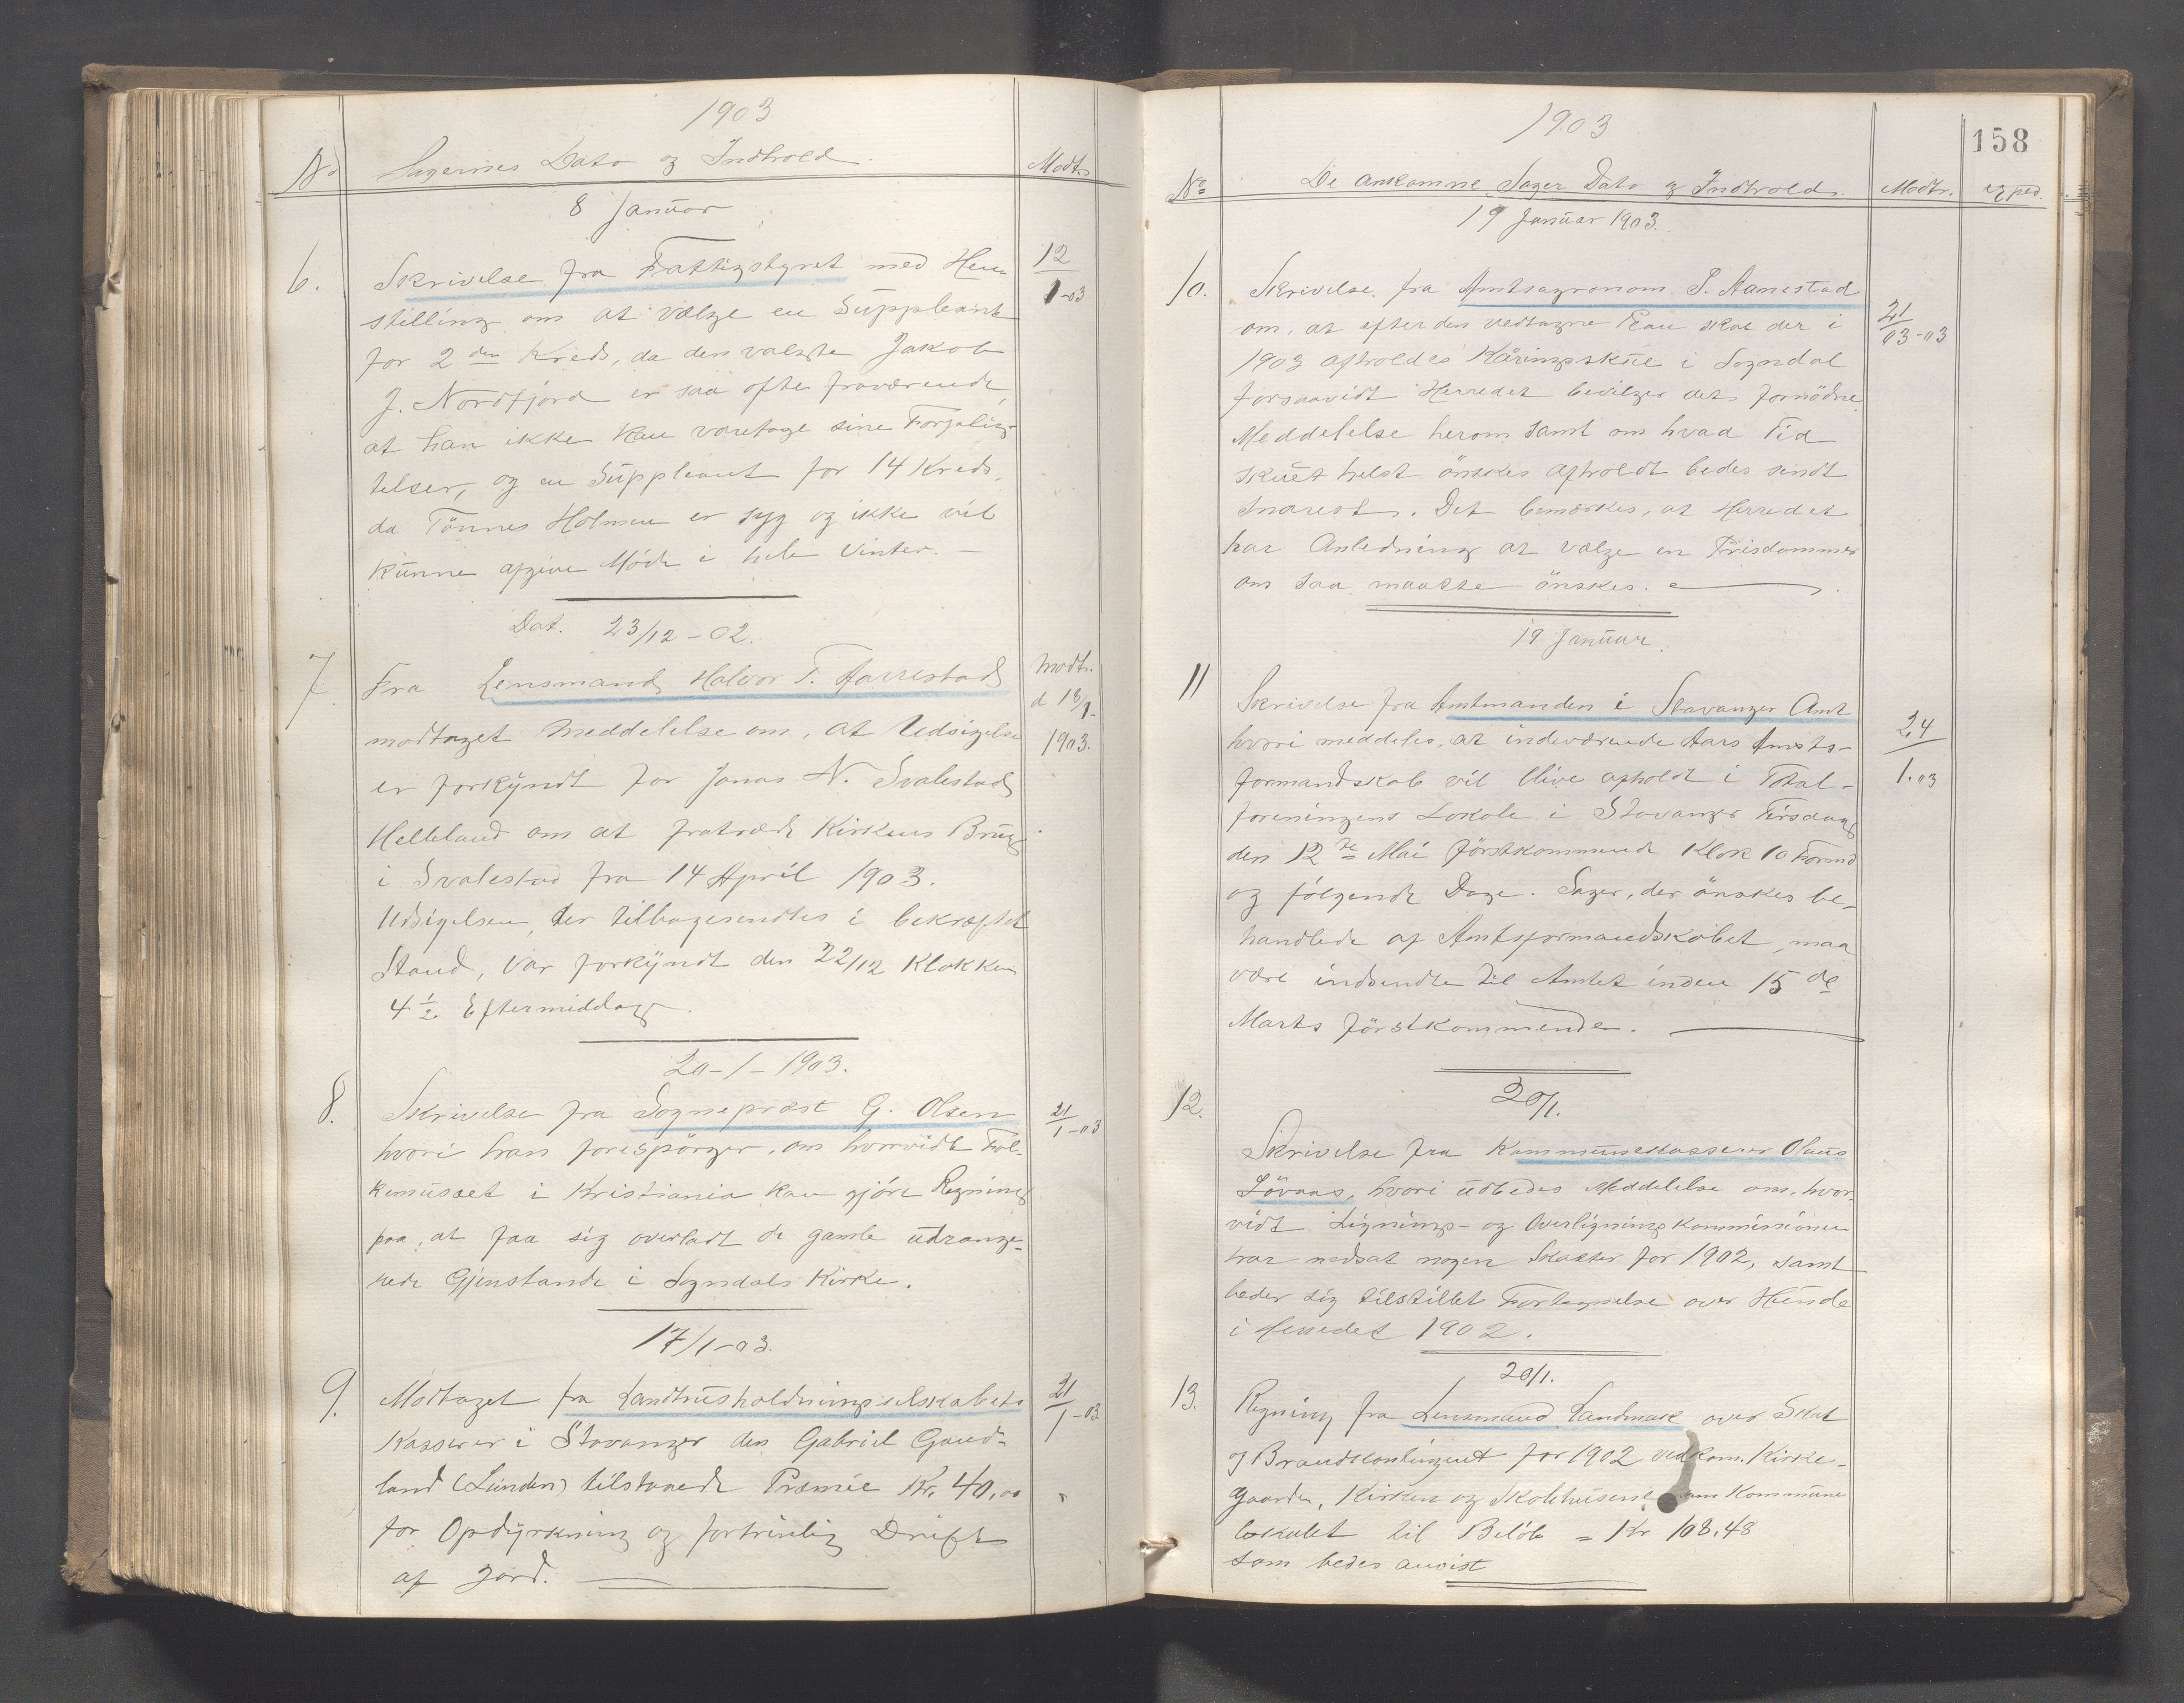 1903
No Sagernes Dato og Indhold. Modt.
8 Januar
6. Skrivelse fra Fattigstyret med Hen- 12/1-03
stilling om at vælge en Suppleant
for 2den Kreds, da den valgte Jakob
J. Nordfjord er saa ofte fraværende,
at han ikke kan varetage sine Forplig-
telser, og en Suppleant for 14 Kreds,
da Tönnes Holmen er syg og ikke vil
kunne afgive Möde i hele Vinter. —
Dat. 23/12-02.
7. Fra Lensmand Halvor T. Aarrestad Modt. d 18/1-1903.
modtaget Meddelelse om, at Udsigelse
er forkyndt for Jonas N. Svalestad
Helleland om at fratræde Kirkens Brug
i Svalestad fra 14 April 1903.
Udsigelsen, der tilbagesendtes i bekræftet
Stand, var forkyndt den 22/12 Klokken
4 1/2 Eftermiddag.
20-1-1903.
8. Skrivelse fra Sogneprest G. Olsen 21/1-03
hvori han forespörger, om hvorvidt Fol-
kemusæet i Kristiania kan gjöre Regning
paa, at faa sig overladt de gamle udrange-
rede Gjenstande i Sogndals Kirke.
17/1-03.
9. Modtaget fra Landhusholdningsselskabets 21/1-03
Kasserer i Stavanger den Gabriel Gaud-
land (Lunden) tilstaaede Præmie Kr. 40,00
for Opdyrkning og fortrinlig Drift
af Jord.
1903
158
No De ankomne Sager Dato og Indhold. Modt. exped.
19 Januar 1903.
10. Skrivelse fra Amtsagronom P. Aanestad 21/03-03
om, at efter den vedtagne Plan skal der i
1903 afholdes Kåringsskue i Sogndal
forsaavidt Herredet bevilger det fornödne
Meddelelse herom samt om hvad Tid
skuet helst önskes afholdt bedes sendt
snarest. Det bemærkes, at Herredet
har Anledning at vælge en Prisdommer
om saa maatte önskes.
19 Januar.
11 Skrivelse fra Amtmanden i Stavanger Amt 24/1.03
hvori meddeles, at indeværende Aars Amts-
formandskab vil blive afholdt i Total-
foreningens Lokale i Stavanger Tirsdag
den 12te Mai förstkommende Klok 10 Formd
og fölgende Dage. Sager, der önskes be-
handlede af Amtsformandskabet, maa
være indsendte til Amtet inden 15de
Marts förstkommende.
20/1.
12. Skrivelse fra Kommunekasserer Olaus
Lövaas, hvori udbedes Meddelelse om, hvor-
vidt Ligning- og Overligningskommissionen
har nedsat nogen Skatter for 1902, samt
beder sig tilstillet Fortegnelse over Hunde
i Herredet 1902.
20/1.
13. Regning fra Lensmand Landmark over Skat
og Brandkontingent for 1902 vedkom. Kirke-
gaarden, Kirken og Skolehusene Kommune
lokalet til Belöb = Kr 108.48
som bedes anvist